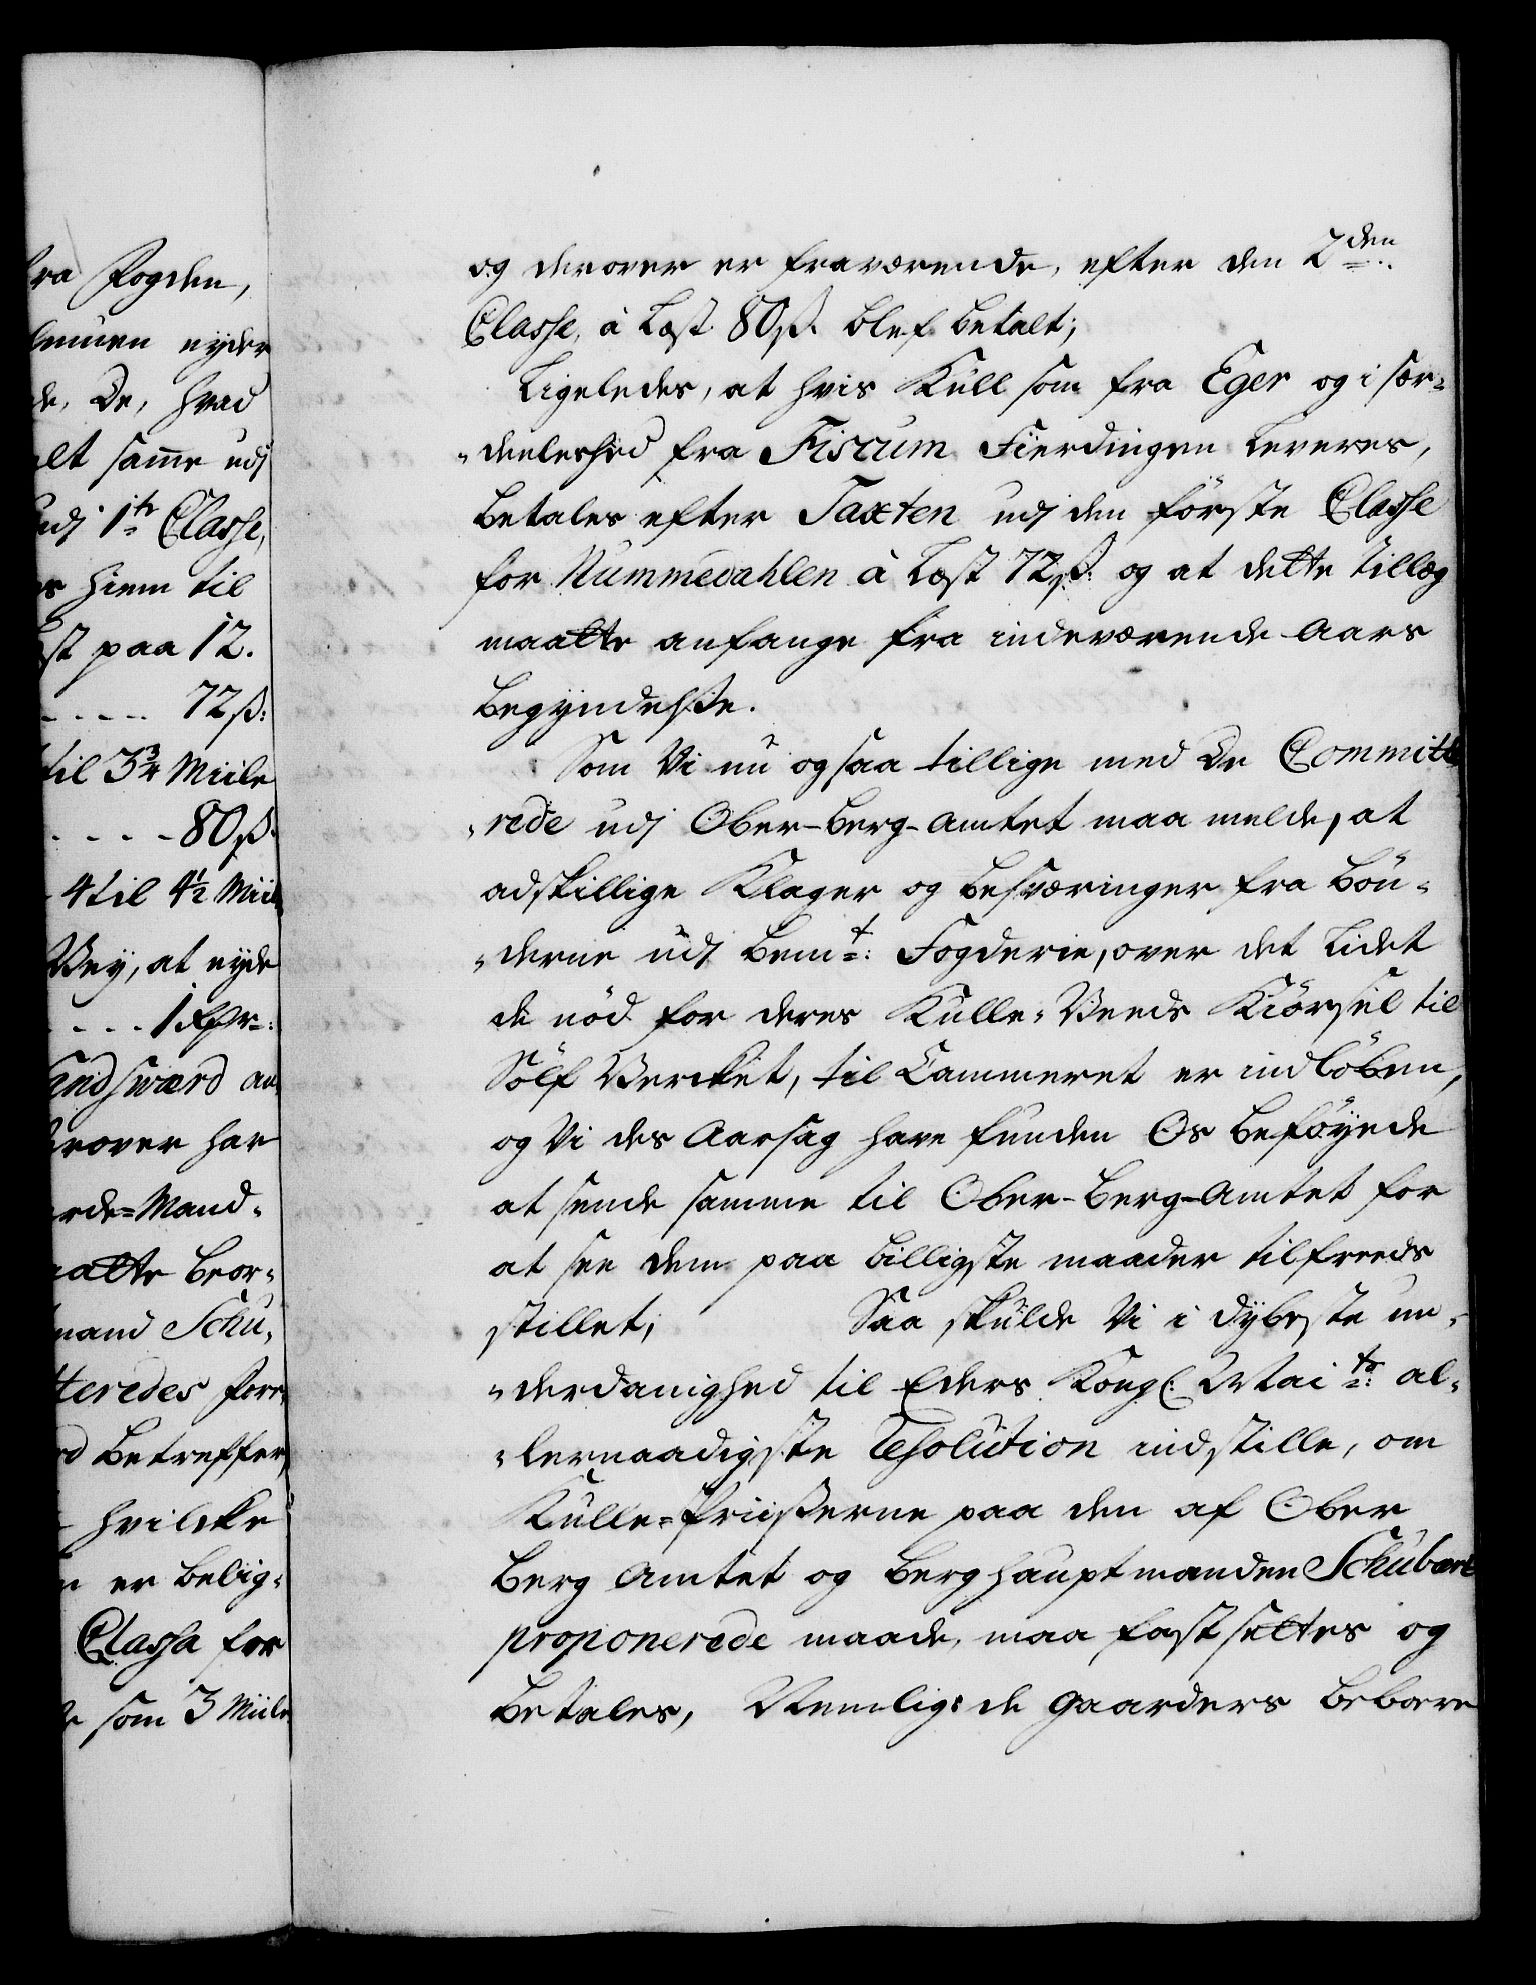 fra Fogden,
nyder
de, De, hvad
alt samme udj
udj 1te Classe,
hiem til
paa 12.
---- 72ß:
til 3¾ Miile
---- 80ß.
4 til 4½ Miil
Vey, at nyde
---- 1 Rdr:
Sandsværd an
over har
Mand-
beor-
mand Schu-
teredes For-
betreffer,
hvilcke
er belig-
Classe for
som 3 Miile
og derover er fraværende, efter den 2den
Classe, à Læst 80ß. blef betalt;
Ligeledes, at hvis Kull som fra Eger og i sær-
-deeleshed fra Fiscum Fierdingen leveres,
betales efter Taxten udj den förste Classe
for Nummedahlen à Læst 72ß: og at dette tillæg
maatte anfange fra indeværende Aars
begyndelße.
Som Vi nu ogsaa tillige med De Committe
-rede udj Ober-Berg-Amtet maa melde, at
adskillige Klager og besværinger fra bön-
-derne udj bemt: Fogderie, over det lidet
de nöd for deres Kulle-Veeds Kiörsel til
Sölf Vercket, til Cammeret er indlöben,
og Vi des Aarsag have funden Os beföyede
at sende samme til Ober-Berg-Amtet for
at see dem paa billigste maader tilfreeds
stillet; Saa skulde Vi i dybeste un-
-derdanighed til Eders Kongl: Maitz: al-
-lernaadigste Resolution indstille, om
Kulle-Prießerne paa den af Ober
Berg Amtet og Berghauptmanden Schubart
proponerede maade, maa fastsættes og
betales, Nemlig: de Gaarders beboere